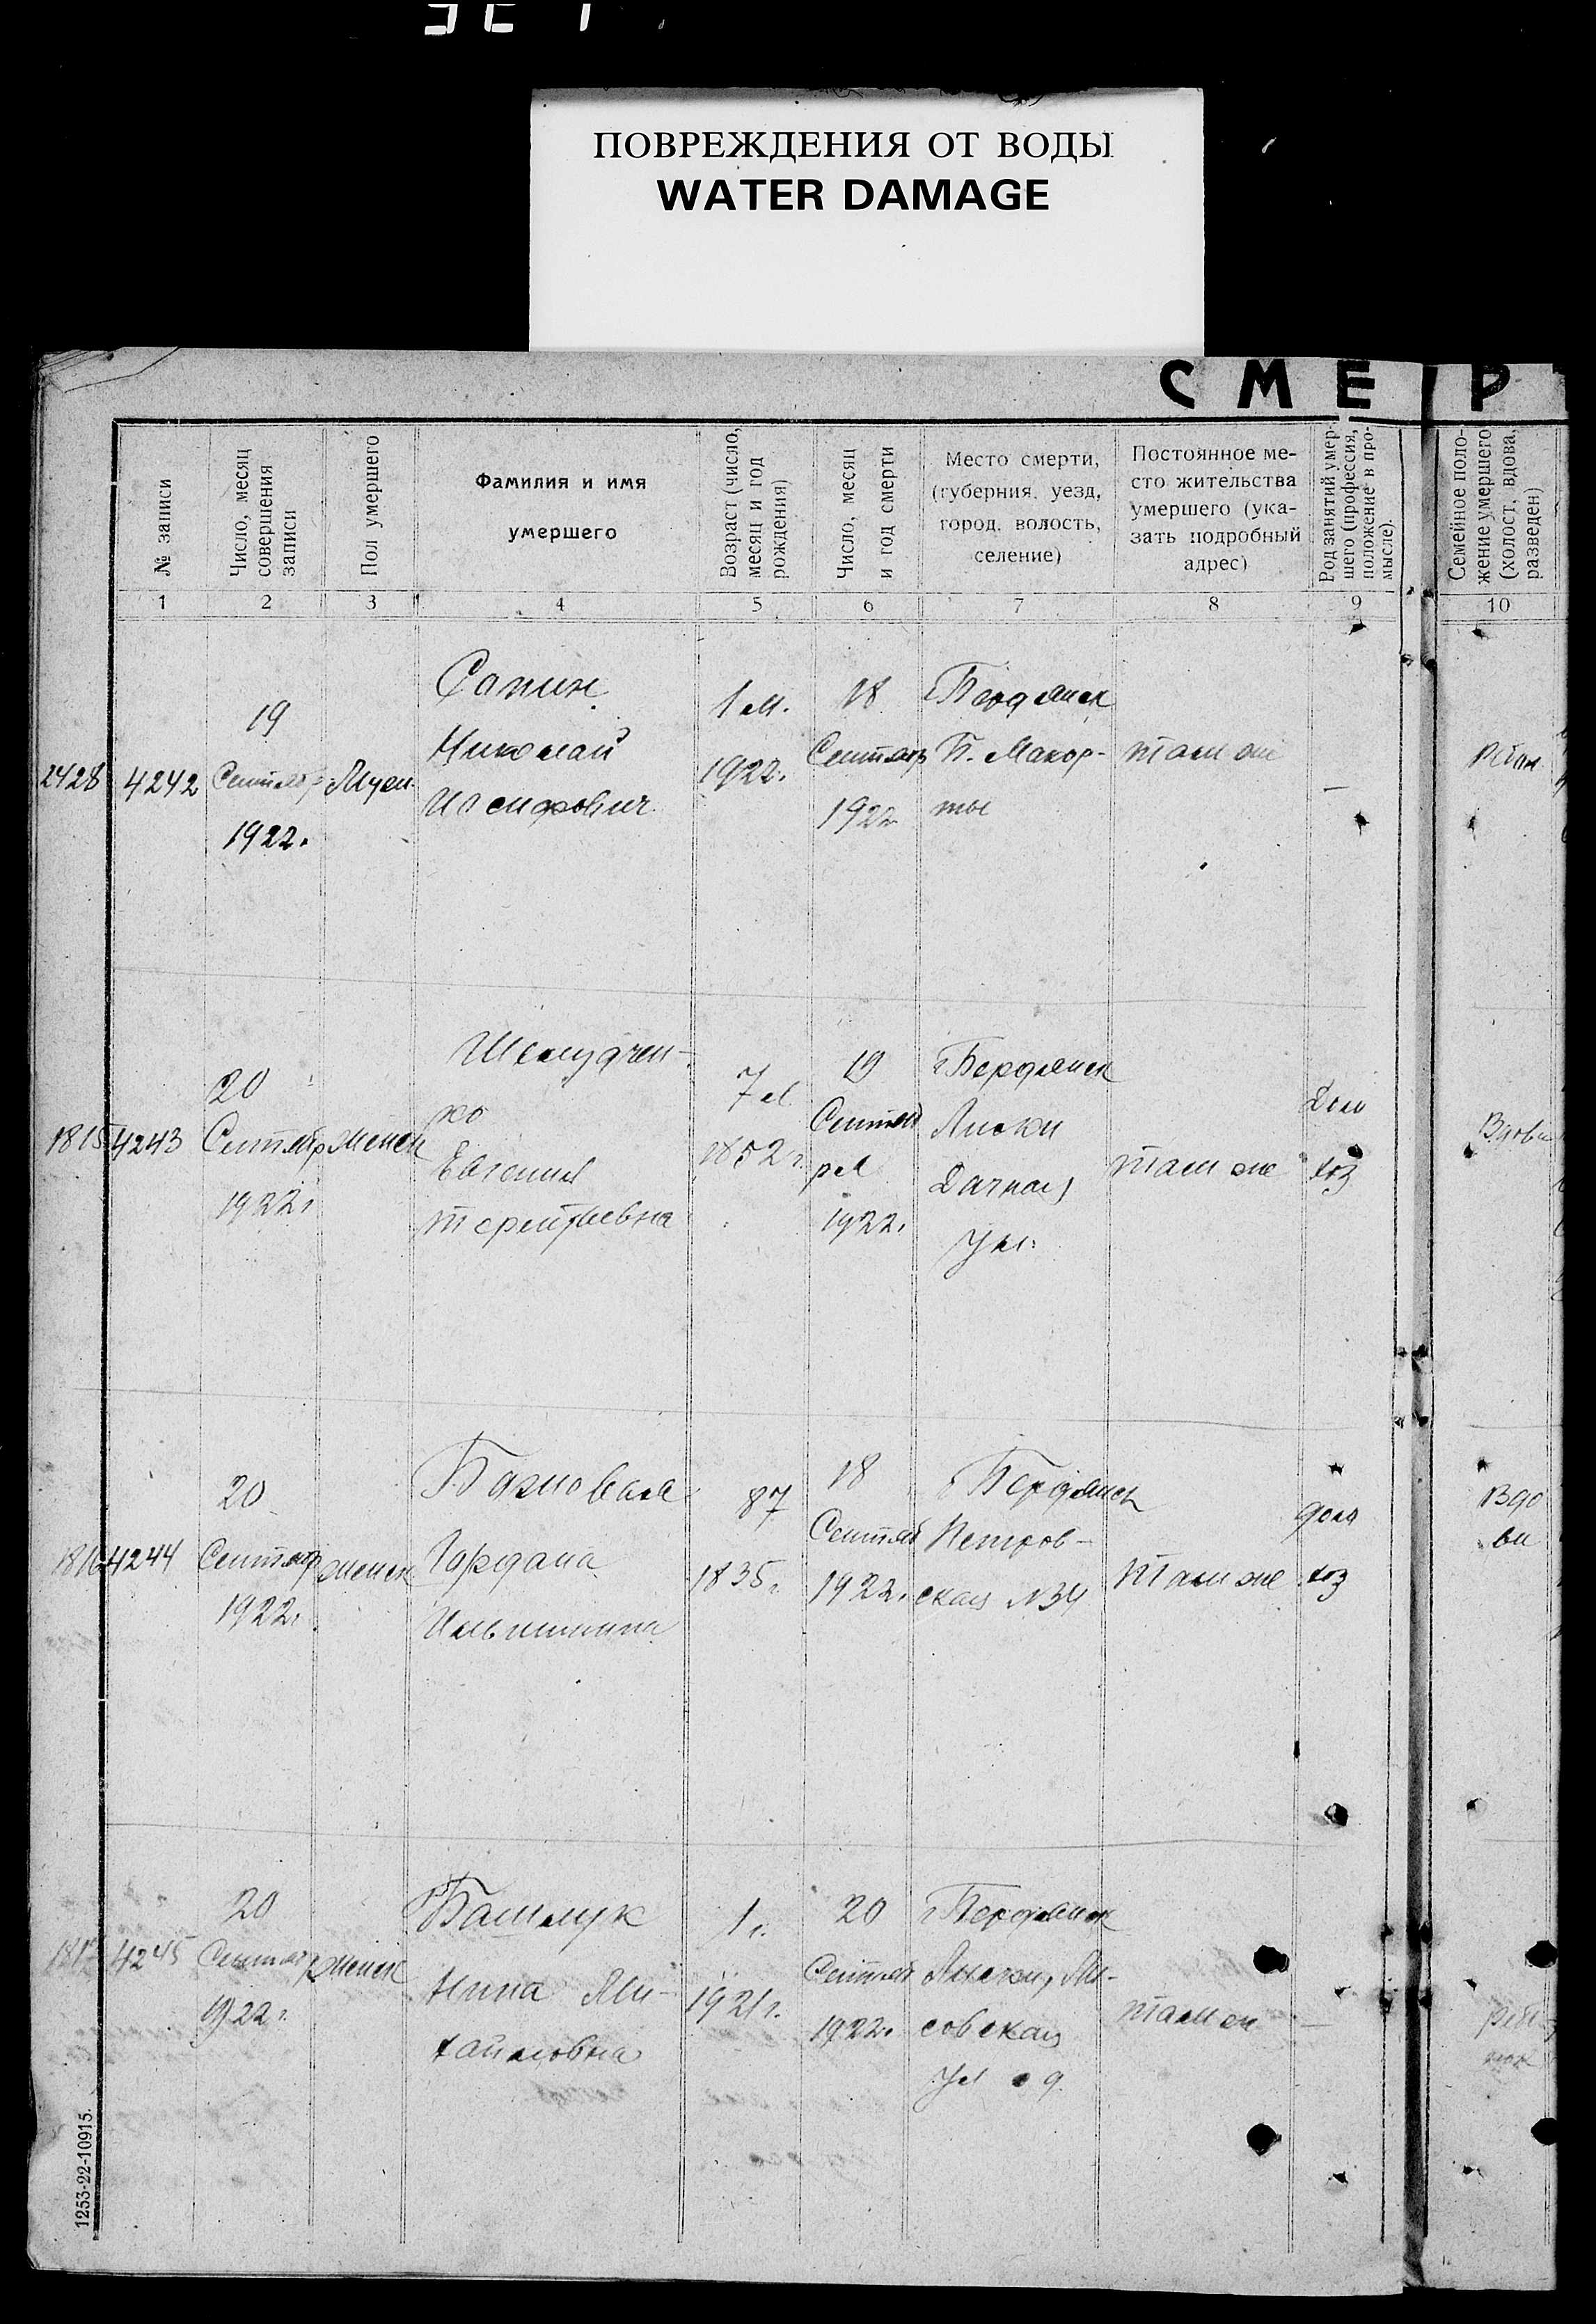 ПОВРЕЖДЕНИЯ ОТ ВОДЫ
WATER DAMAGE
СМЕР
№ записи
Число, месяц
совершения
записи
Пол умершего
Фамилия и имя
умершего
Возраст (число,
месяц и год
рождения)
Число, месяц
и год смерти
Место смерти,
(губерния, уезд,
город, волость,
селение)
Постоянное ме-
сто жительства
умершего (ука-
зать подробный
адрес)
Род занятий умер-
шего (профессия,
положение в про-
мысле).
Семейное поло-
жение умершего
(холост, вдова,
разведен)
1 2 3 4 5 6 7 8 9 10
2428
4242
19
Сентябр
1922.
Муж.
Сапин
Николай
Иосифович
1 м.
1922.
18
Сентябр
1922
Бердянск
Б. Макор-
ты
там же
—
1815
4243
20
Сентябр
1922г
женск
ко
Евгения
Терентьевна
1852г.
19
Сентяб
ря
1922.
г Бердянск
Лиски
Дачная
ул.
там же
Дом
хоз
Вдова
1816
4244
20
Сентябр
1922г.
женск
Гордана
Ильинична
87
1835г.
18
Сентяб
1922.
г Бердянск
Петров-
ская №34
там же
дом
хоз
Вдо
ва
1817
4245
20
Сентяб
1922г.
женск
Башлук
Нина Ми-
хайловна
1 г.
1921г.
20
Сентяб
1922.
г Бердянск
Лиски, Ли-
совская
ул 9
там же
—
1253-22-10915.